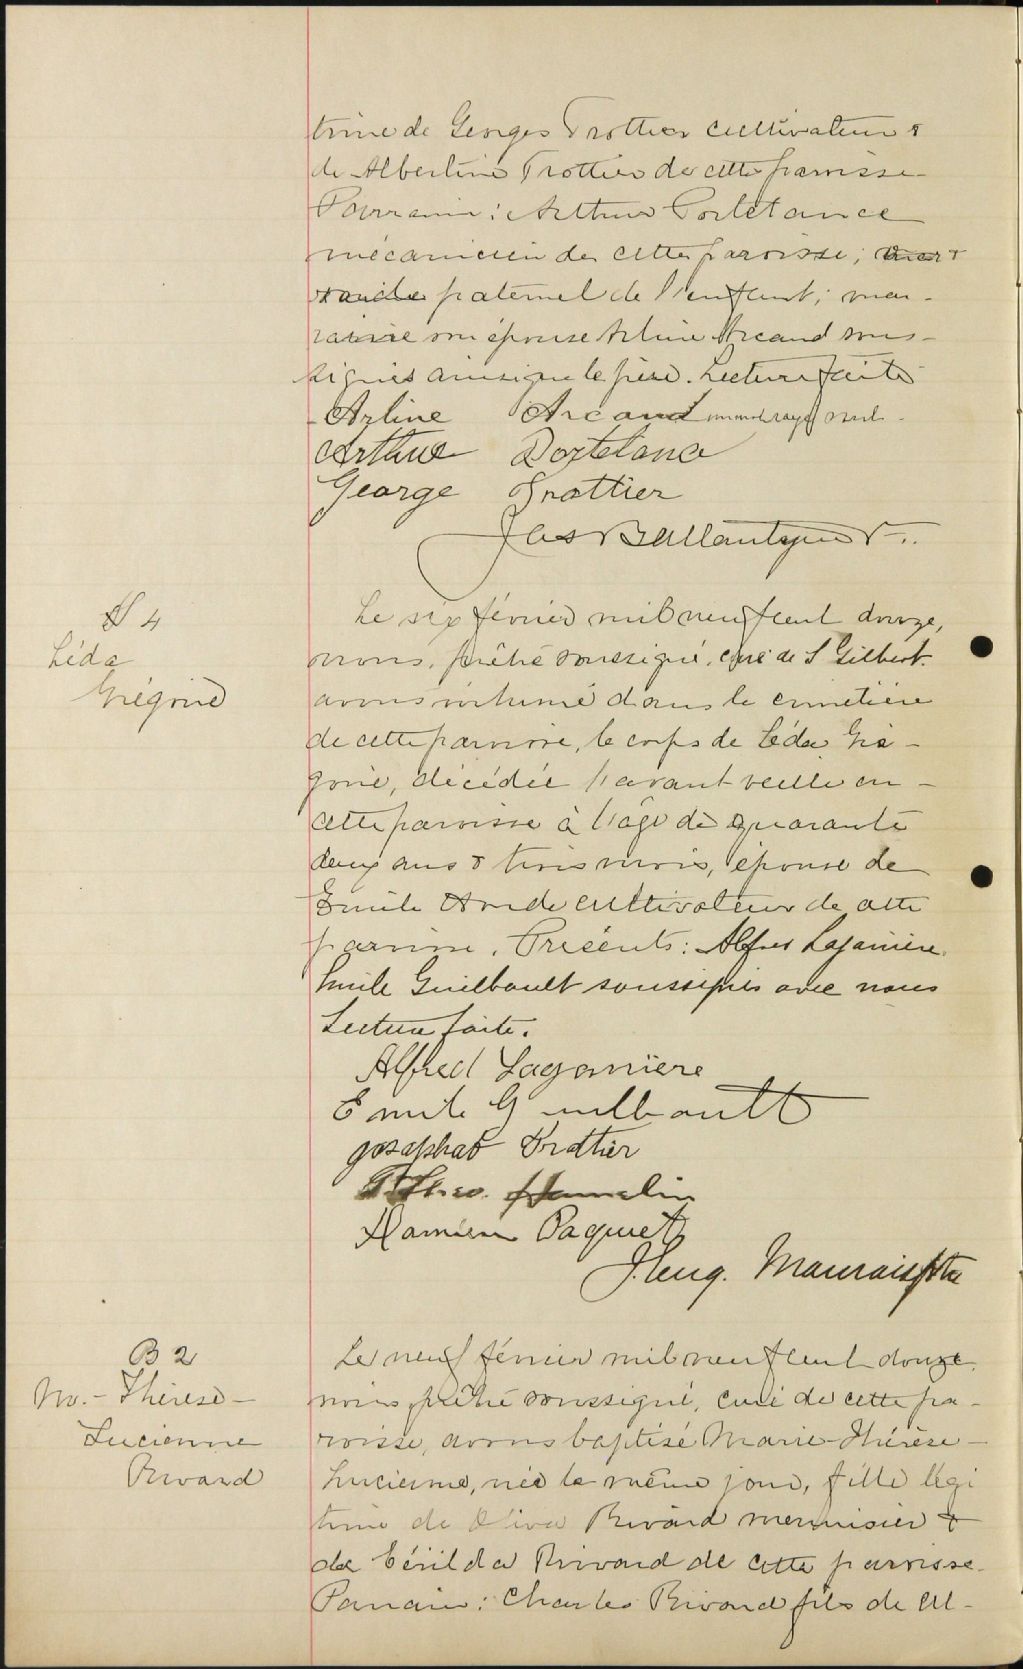 time de Georges Trottier cultivateur &
de Albertine Trottier de cette paroisse
Parrain: Arthur Portelance
mécanicien de cette paroisse;
paternel de l'enfant; mar-
raine son épouse Arline Arcand sous-
signés ainsi que le père. Lecture faite
Arline Arcand nul
Arthur Portelance
George Trottier
Jas Ballantyne
S 4
Léda
Grégoire
Le six février mil neuf cent douze,
nous, prêtre soussigné, curé de S Gilbert
avons inhumé dans le cimetière
de cette paroisse, le corps de Léda Gré-
goire, décédée l'avant veille en
cette paroisse à l'âge de quarante
deux ans & trois mois, épouse de
Emile cultivateur de cette
paroisse. Présents: Alfred Laganière
Emile Guilbault soussignés avec nous
Lecture faite.
Alfred Laganière
Emile Guilbault
Josaphat Trottier
Hamelin
Damien Paquet
J. Eug. Maurais ptre
B 2
M.- Thérèse-
Lucienne
Rivard
Le neuf février mil neuf cent douze
nous prêtre soussigné, curé de cette pa-
roisse, avons baptisé Marie-Thérèse-
Lucienne, née le même jour, fille légi
time de Oliva Rivard menuisier &
de Rivard de cette paroisse.
Parrain: Charles Rivard fils de